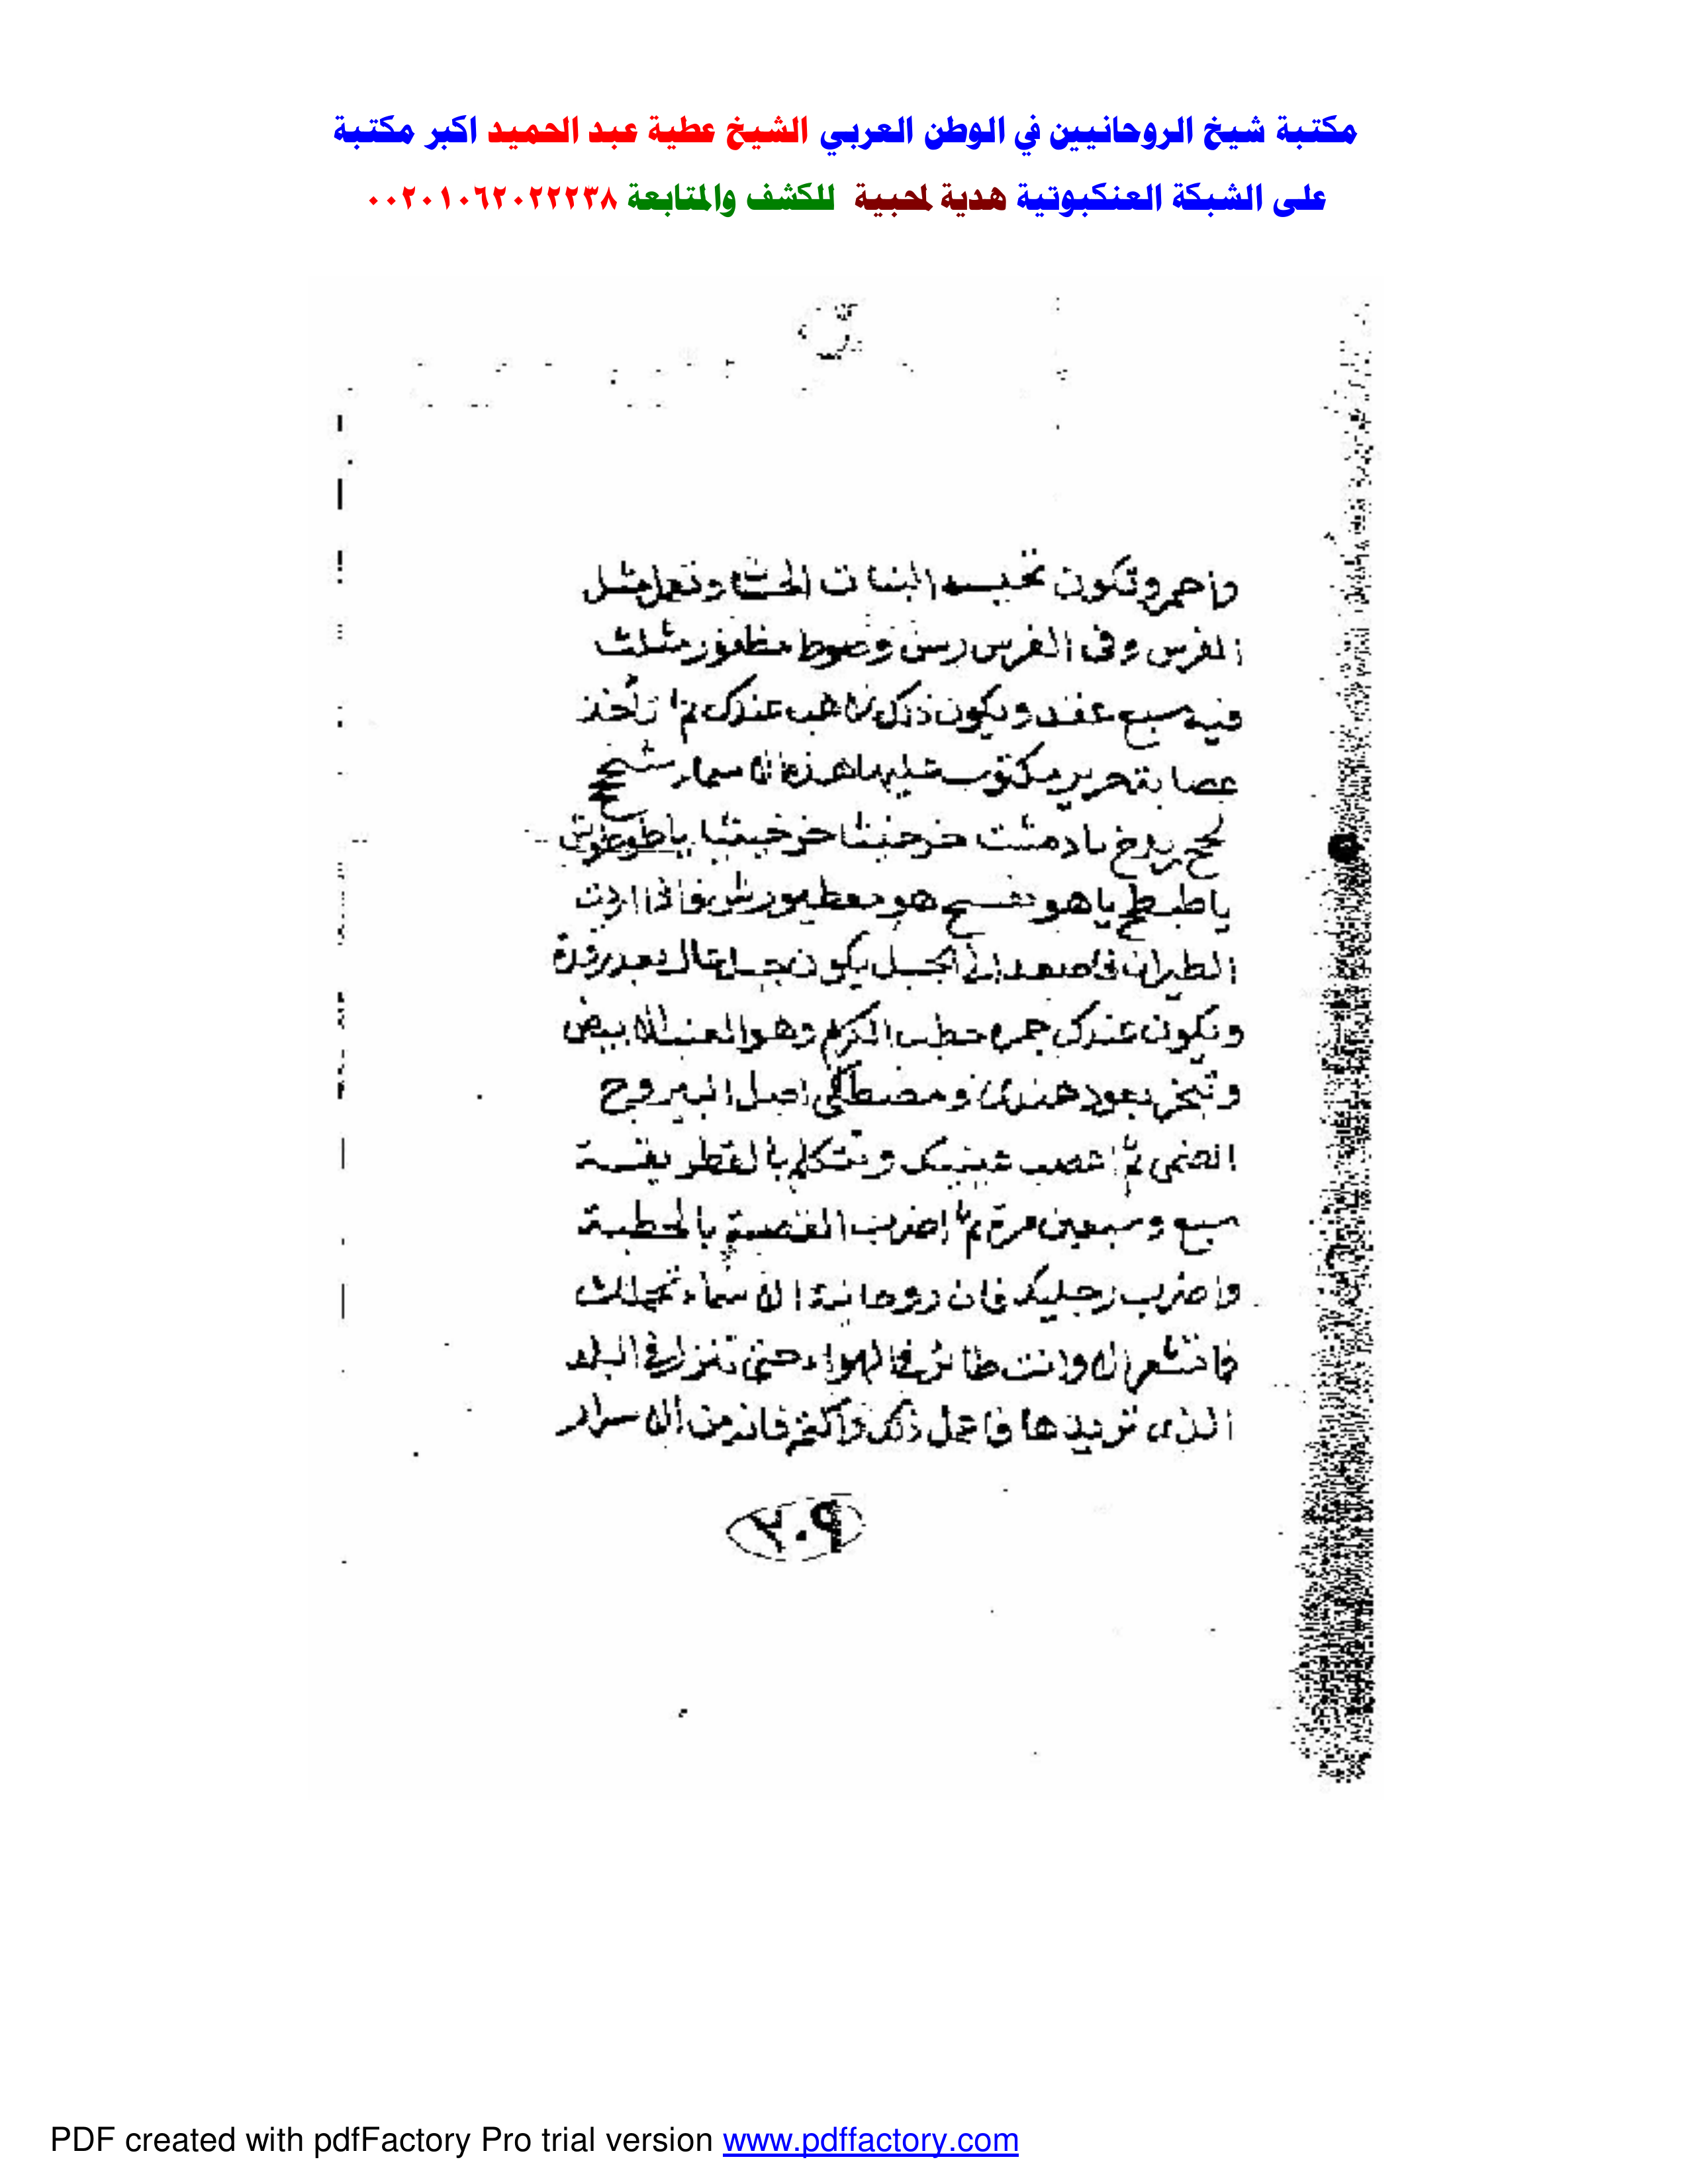 مكتبة شيخ الروحانيين في الوطن العربي الشيخ عطية عبد الحميد اكبر مكتبة
على الشبكة العنكبوتية هدية لمحبية للكشف والمتابعة ٠٠٢٠١٠٦٢٠٢٢٢٣٨
واحمر وتكون تخيسه البنات وتعمل مثل
الفرس وفى الفرس رسن وصوط مظفور مثلث
فيه سبع عقد ويكون ذلك عندك ثم تأخذ
عصابة حرير مكتوب عليها هذه الاسماء
خرخيثا
ياهو هو فاذا اردت
الطيران فاصعد الى الجبل يكون
وتكون عندك جمرة حطب الكرم وهو العنب الابيض
وتبخر بعود هندى ومصطكى اصل اليبروح
الصنمى ثم اعصب عينيك وتتكلم بالقطريفية
سبع وسبعين مرة ثم اضرب القصبة بالخطبة
واضرب رجليك فان روحانية الاسماء تحملك
فاتشعر الا وانت طائر فى الهواء حتى تنزل فى البلد
الذى تريدها فاعمل ذلك واكتم فانه من الاسرار
٢٠٩
PDF created with pdfFactory Pro trial version www.pdffactory.com